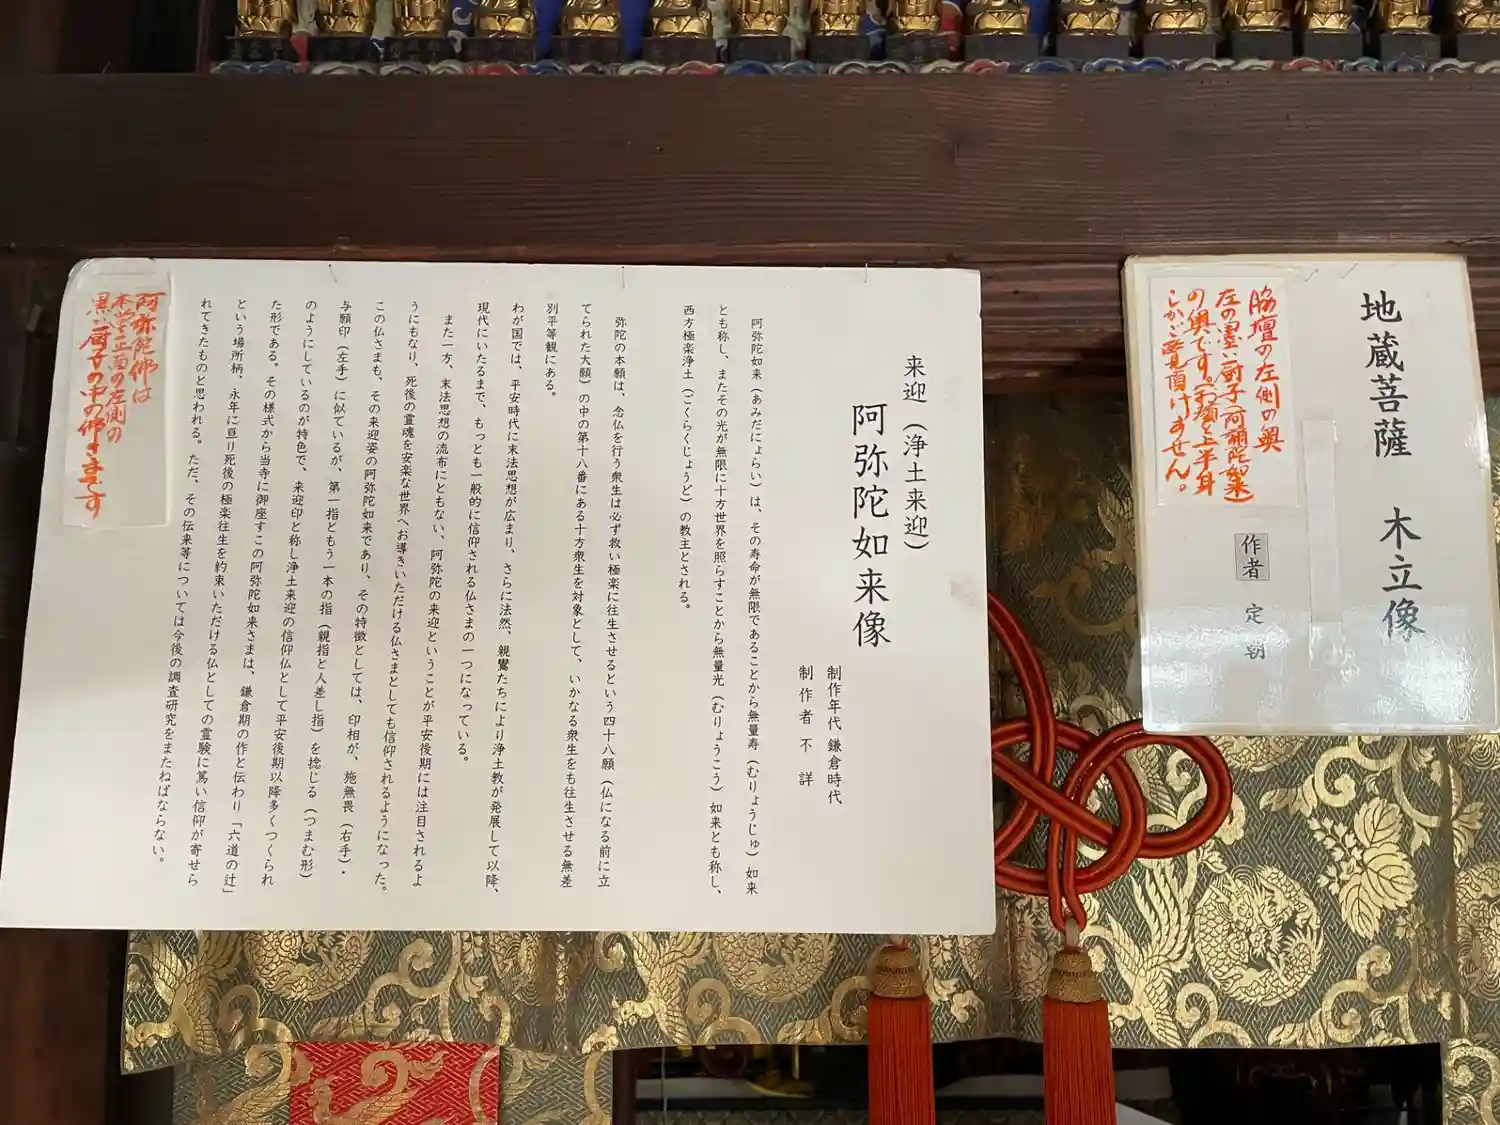 地蔵菩薩 木立像
作者 定朝
脇壇の左側の奥
左の黒い厨子(阿彌陀如来)
の奥です。(お顔と上半身
しかご覧頂けません。
来迎(浄土来迎)
阿弥陀如来像
制作年代 鎌倉時代
制作者 不詳
阿弥陀如来(あみだにょらい)は、その寿命が無限であることから無量寿(むりょうじゅ)如来
とも称し、またその光が無限に十方世界を照らすことから無量光(むりょうこう)如来とも称し、
西方極楽浄土(ごくらくじょうど)の教主とされる。
弥陀の本願は、念仏を行う衆生は必ず救い極楽に往生させるという四十八願(仏になる前に立
てられた大願)の中の第十八番にある十方衆生を対象として、いかなる衆生をも往生させる無差
別平等観にある。
わが国では、平安時代に末法思想が広まり、さらに法然、親鸞たちにより浄土教が発展して以降、
現代にいたるまで、もっとも一般的に信仰される仏さまの一つになっている。
また一方、末法思想の流布にともない、阿弥陀の来迎ということが平安後期には注目されるよ
うにもなり、死後の霊魂を安楽な世界へお導きいただける仏さまとしても信仰されるようになった。
この仏さまも、その来迎姿の阿弥陀如来であり、その特徴としては、印相が、施無畏(右手)・
与願印(左手)に似ているが、第一指ともう一本の指(親指と人差し指)を捻じる(つまむ形)
のようにしているのが特色で、来迎印と称し浄土来迎の信仰仏として平安後期以降多くつくられ
た形である。その様式から当寺に御座すこの阿弥陀如来さまは、鎌倉期の作と伝わり「六道の辻」
という場所柄、永年に亘り死後の極楽往生を約束いただける仏としての霊験に篤い信仰が寄せら
れてきたものと思われる。ただ、その伝来等については今後の調査研究をまたねばならない。
阿弥陀佛は
本堂正面の左側の
黒い厨子の中の佛さまです